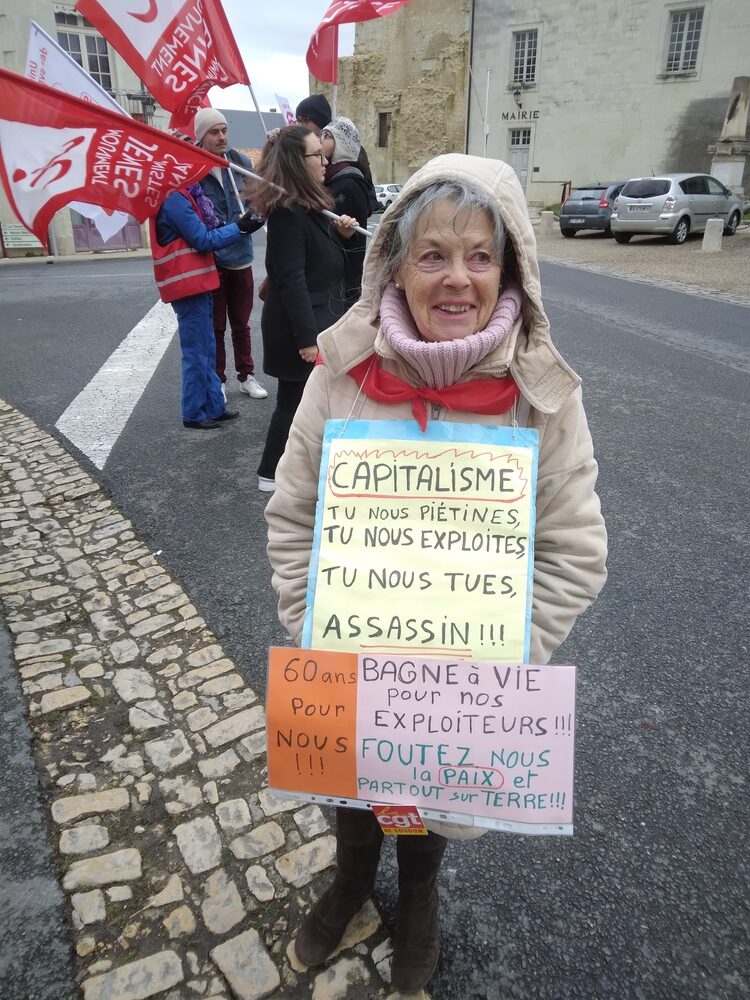 MOUVEMENT
JEUNES
MOUVEMENT
JEUNES
MAIRIE
CAPITALISME
TU NOUS PIÉTINES,
TU NOUS EXPLOITES,
TU NOUS TUES,
ASSASSIN !!!
60 ans
POUR
NOUS
!!!
BAGNE à VIE
pour nos
EXPLOITEURS !!!
FOUTEZ NOUS
la PAIX et
PARTOUT sur TERRE!!!
la
cgt
UL LOUDUN